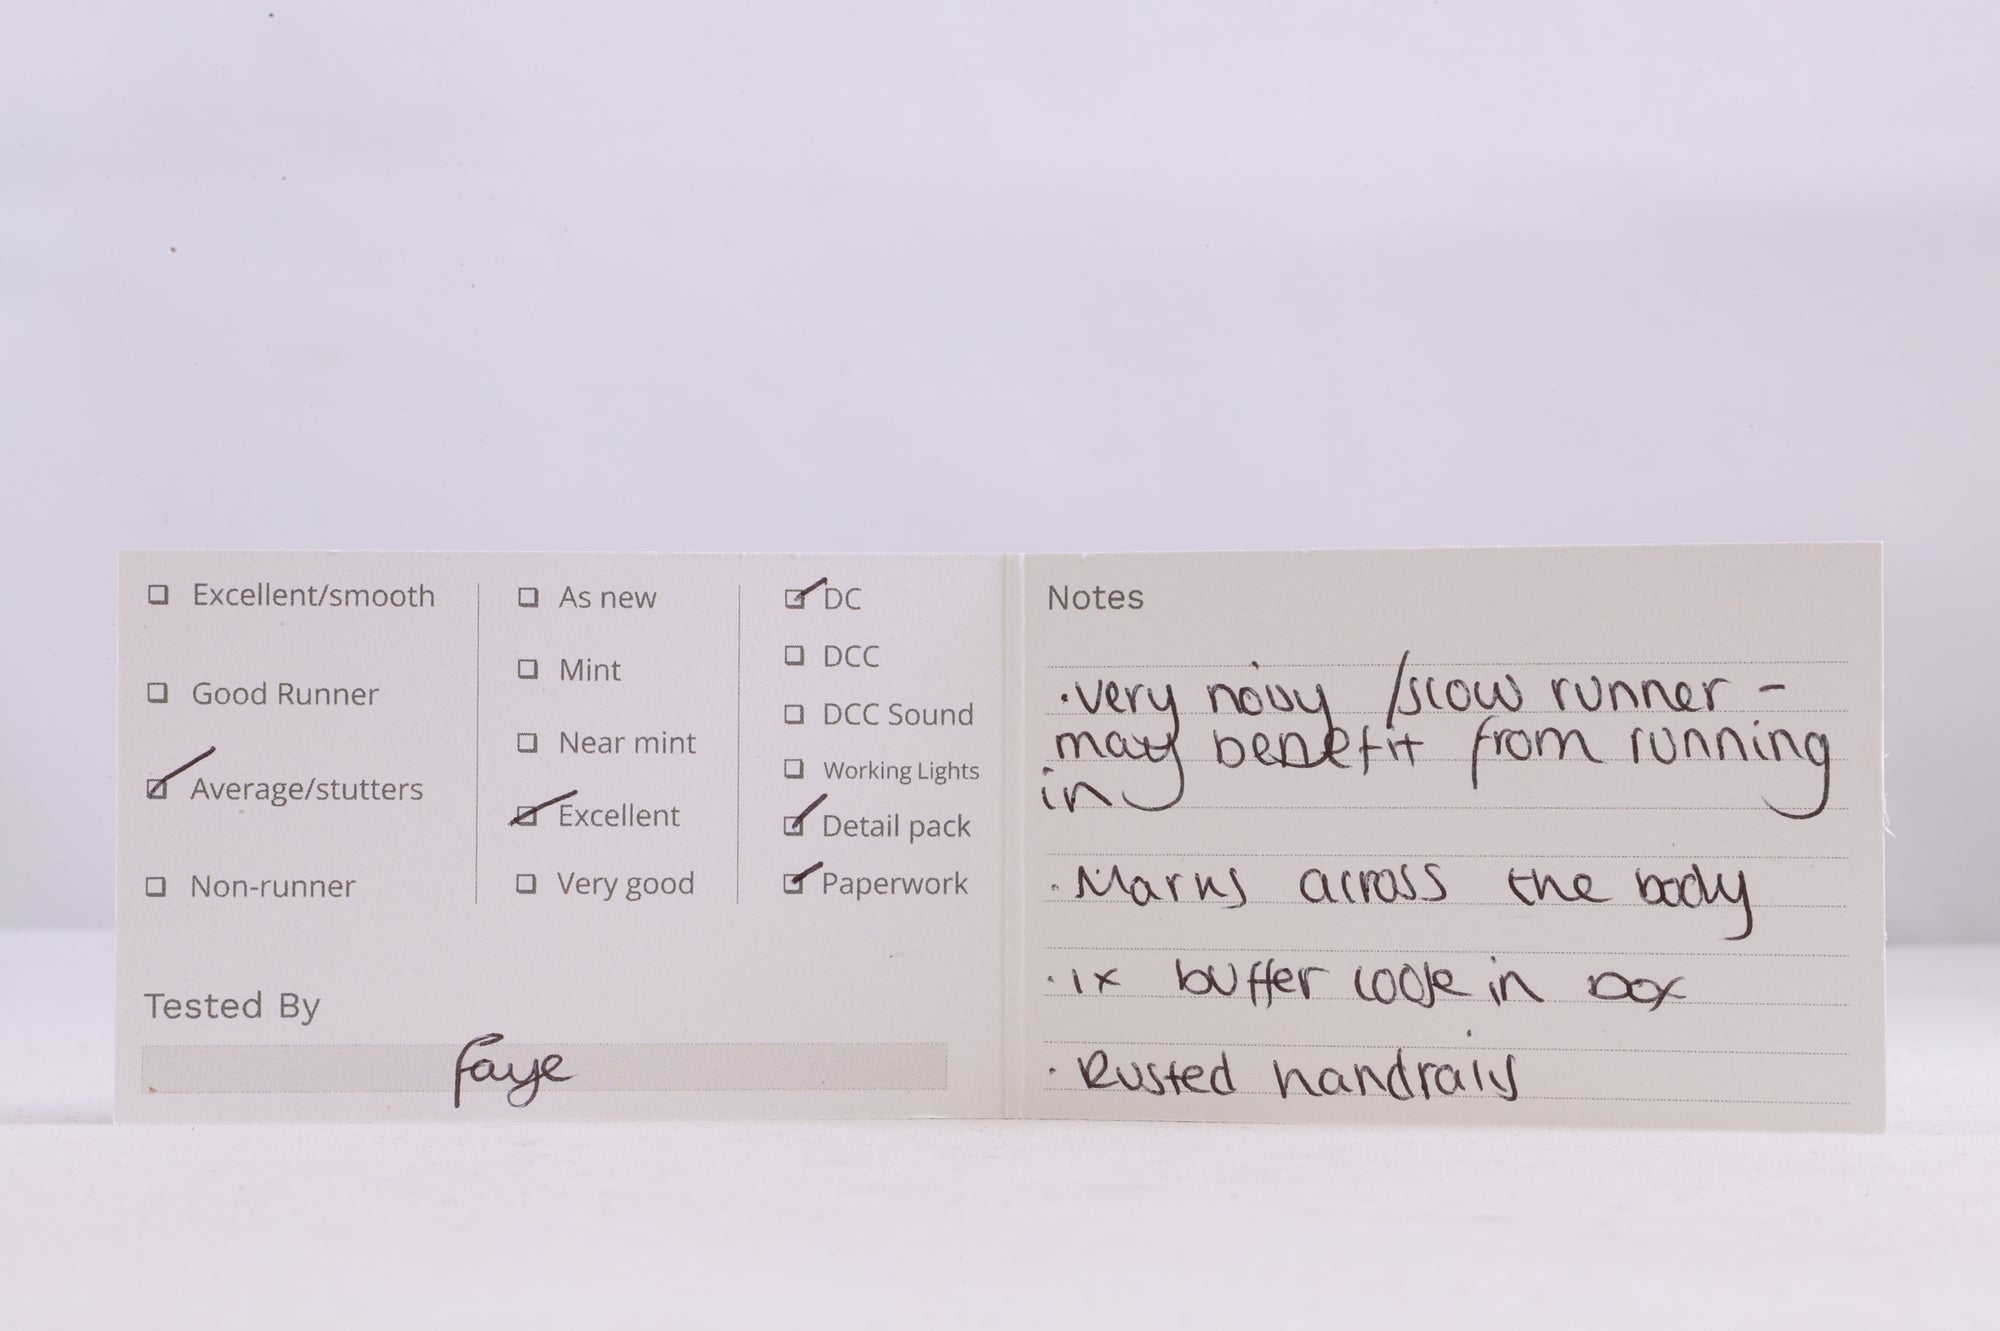 Excellent/smooth
Good Runner
Average/stutters
Non-runner
As new
Mint
Near mint
Excellent
Very good
DC
DCC
DCC Sound
Working Lights
Detail pack
Paperwork
Tested By
Faye
Notes
·very noisy /slow runner -
may benefit from running
in
·Marks across the body
·1x buffer loose in box
·Rusted handrails